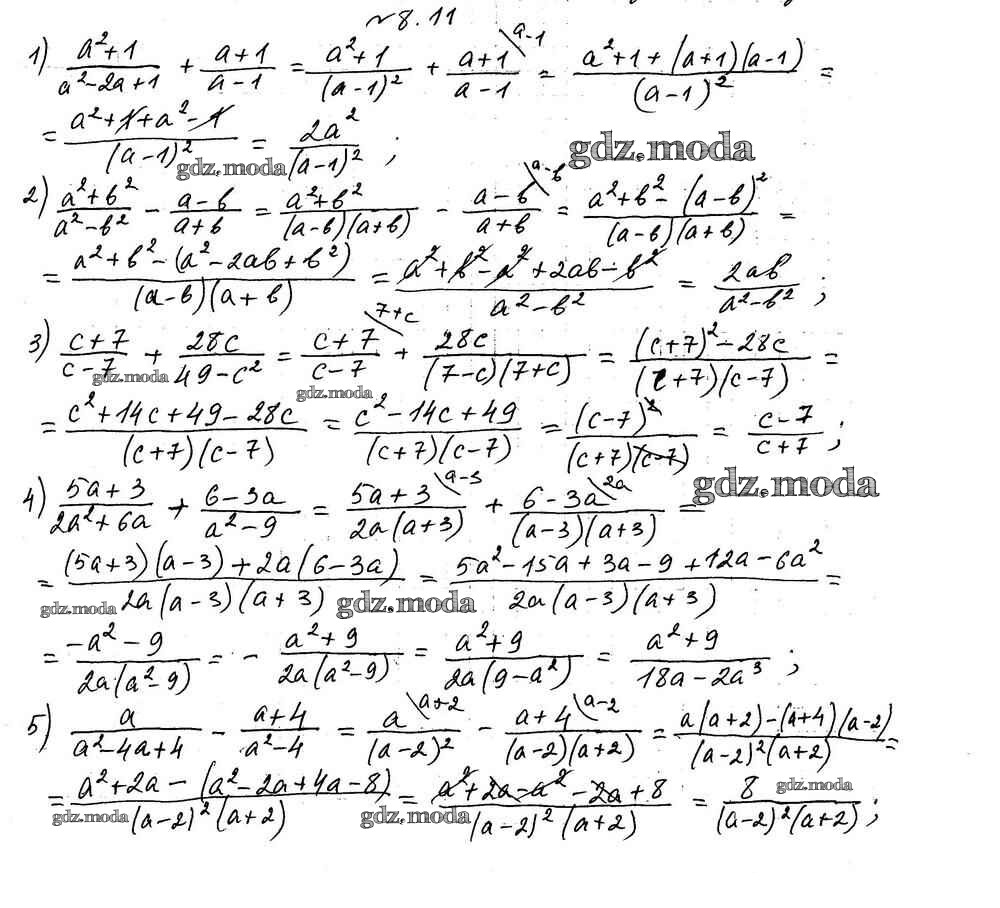 №8.11
1) (a²+1)/(a²-2a+1) + (a+1)/(a-1) = (a²+1)/(a-1)² + (a+1)\a-1/(a-1) = (a²+1+(a+1)(a-1))/(a-1)² =
= (a²+1+a²-1)/(a-1)² = 2a²/(a-1)² ;
gdz.moda gdz.moda
2) (a²+b²)/(a²-b²) - (a-b)/(a+b) = (a²+b²)/((a-b)(a+b)) - (a-b)\a-b/(a+b) = (a²+b²-(a-b)²)/((a-b)(a+b)) =
= (a²+b²-(a²-2ab+b²))/((a-b)(a+b)) = (a²+b²-a²+2ab-b²)/(a²-b²) = 2ab/(a²-b²) ;
3) (c+7)/(c-7) + 28c/(49-c²) = (c+7)\7+c/(c-7) + 28c/((7-c)(7+c)) = ((c+7)²-28c)/((c+7)(c-7)) =
gdz.moda gdz.moda
= (c²+14c+49-28c)/((c+7)(c-7)) = (c²-14c+49)/((c+7)(c-7)) = (c-7)²/((c+7)(c-7)) = (c-7)/(c+7) ;
4) (5a+3)/(2a²+6a) + (6-3a)/(a²-9) = (5a+3)\a-3/(2a(a+3)) + (6-3a)\2a/((a-3)(a+3)) =
gdz.moda
= ((5a+3)(a-3)+2a(6-3a))/(2a(a-3)(a+3)) = (5a²-15a+3a-9+12a-6a²)/(2a(a-3)(a+3)) =
gdz.moda gdz.moda
= (-a²-9)/(2a(a²-9)) = - (a²+9)/(2a(a²-9)) = (a²+9)/(2a(9-a²)) = (a²+9)/(18a-2a³) ;
5) a/(a²-4a+4) - (a+4)/(a²-4) = a\a+2/(a-2)² - (a+4)\a-2/((a-2)(a+2)) = (a(a+2)-(a+4)(a-2))/((a-2)²(a+2)) =
= (a²+2a-(a²-2a+4a-8))/((a-2)²(a+2)) = (a²+2a-a²-2a+8)/((a-2)²(a+2)) = 8/((a-2)²(a+2)) ;
gdz.moda gdz.moda gdz.moda